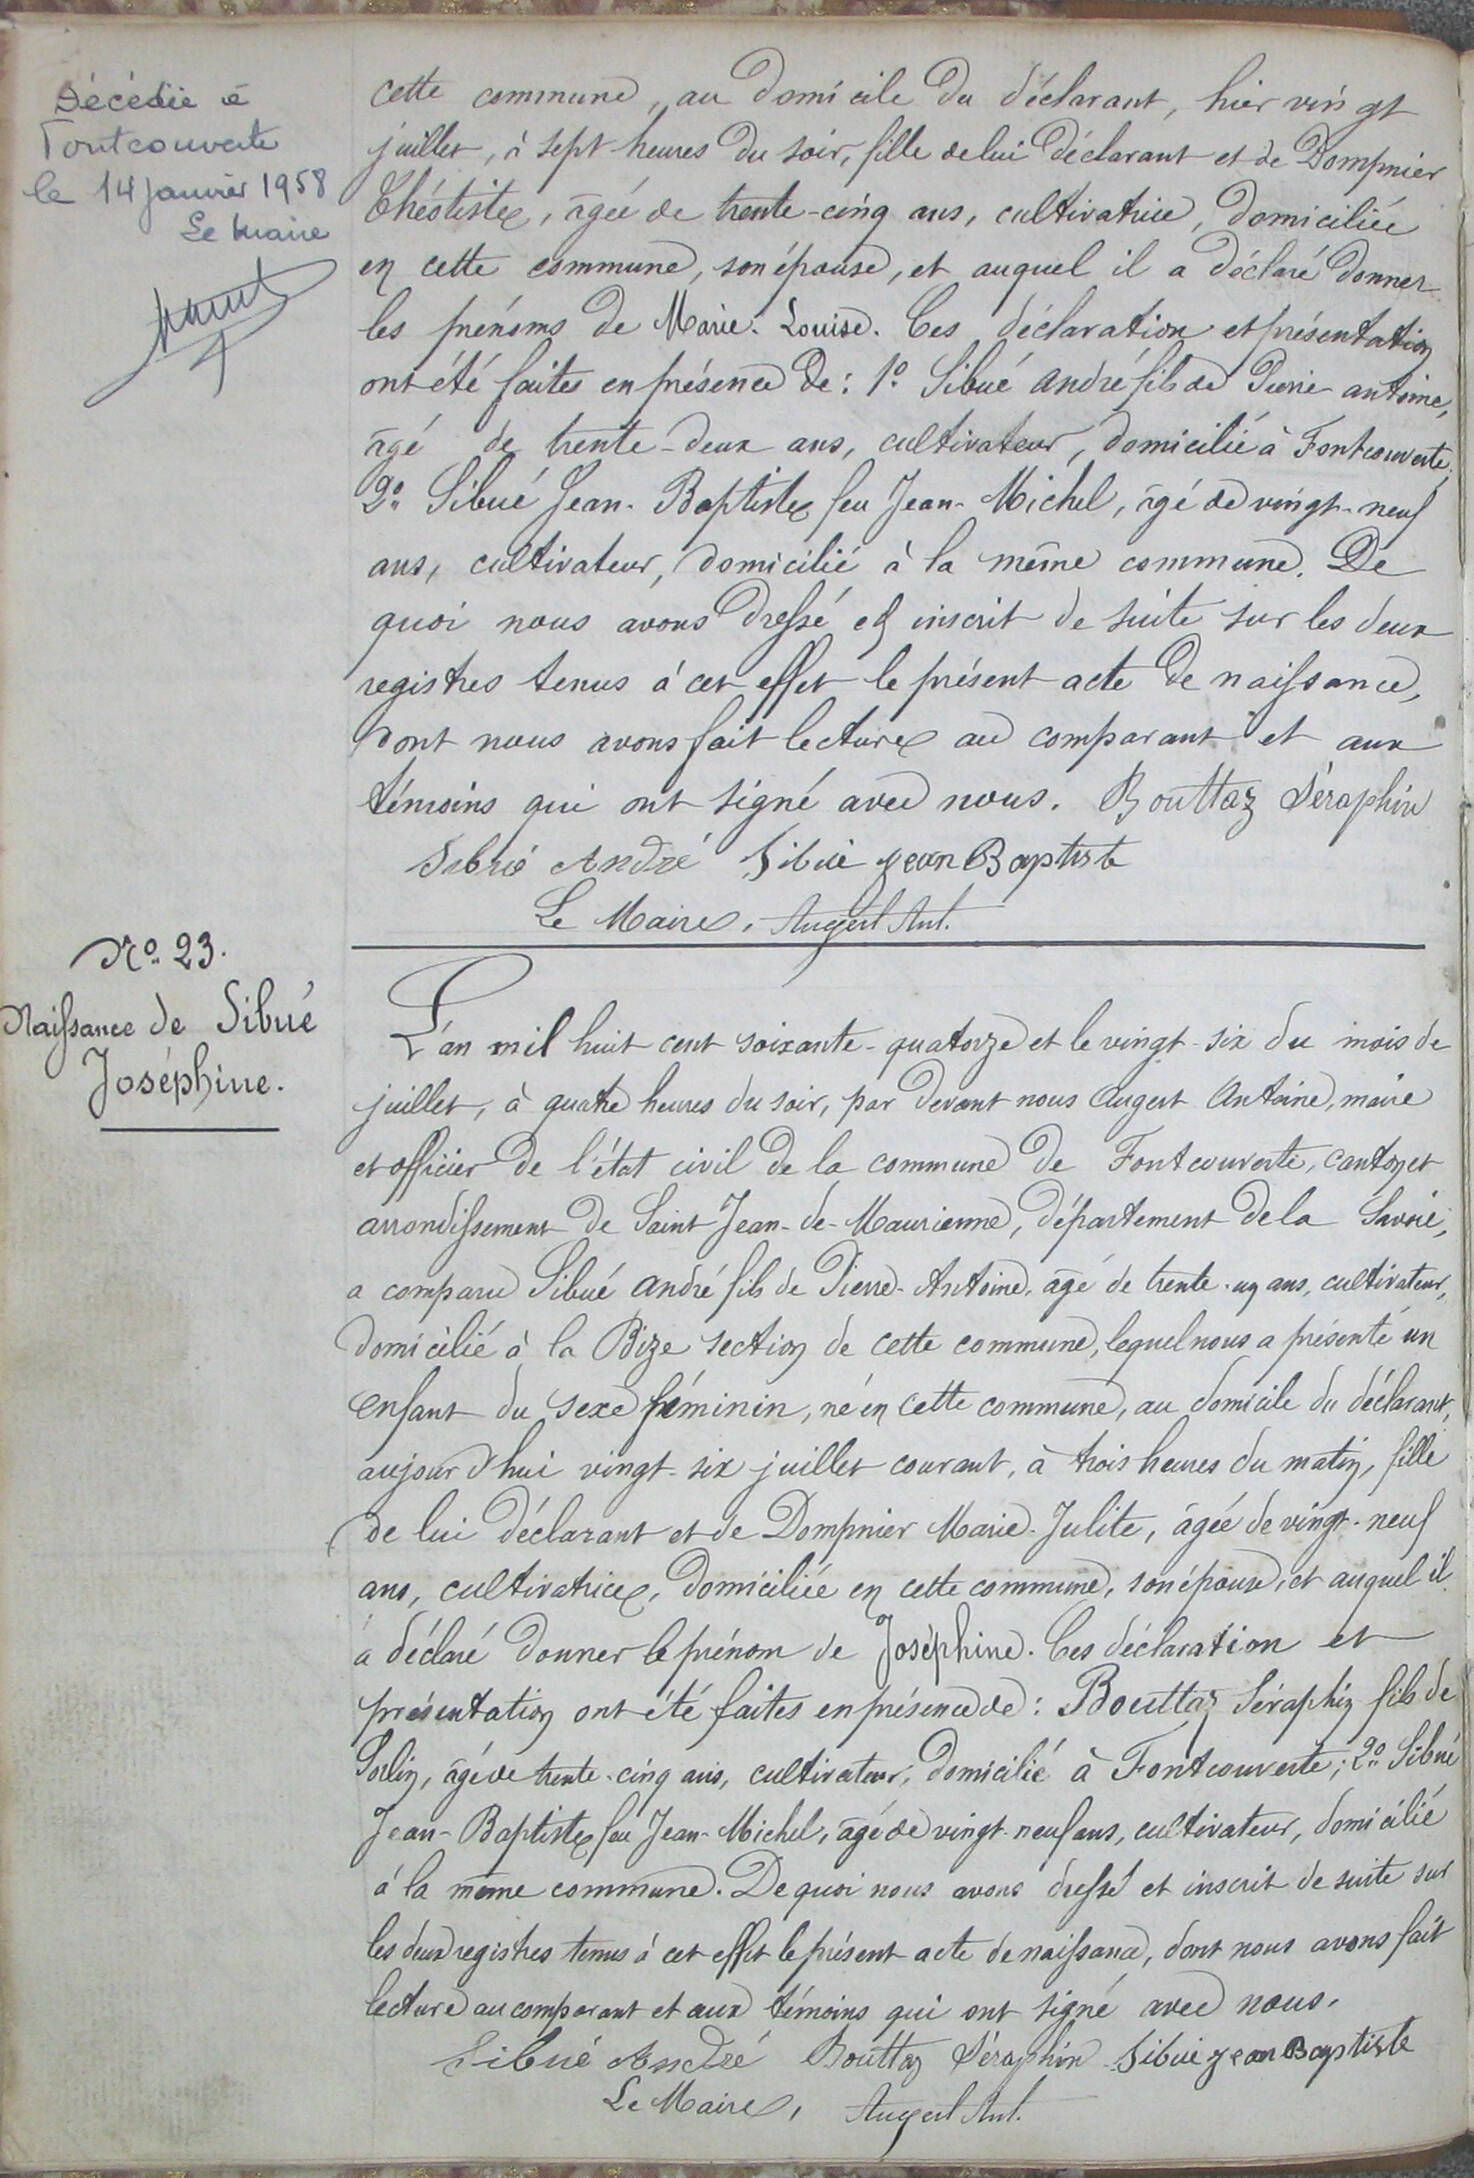 Décédée à
Fontcouverte
le 14 janvier 1958
Le Maire
cette commune, au domicile du déclarant, hier vingt
juillet, à sept heures du soir, fille de lui déclarant et de Dompnier
Théotiste, âgée de trente-cinq ans, cultivatrice, domiciliée
en cette commune, son épouse, et auquel il a déclaré donner
les prénoms de Marie-Louise. Ces déclaration et présentation
ont été faites en présence de: 1º Sibué André fils de Pierre-antoine,
âgé de trente-deux ans, cultivateur, domicilié à Fontcouverte;
2º Sibué Jean-Baptiste feu Jean-Michel, âgé de vingt-neuf
ans, cultivateur, domicilié à la même commune. De
quoi nous avons dressé et inscrit de suite sur les deux
registres tenus à cet effet le présent acte de naissance,
dont nous avons fait lecture au comparant et aux
témoins qui ont signé avec nous. Bouttaz Séraphin
Sibué André Sibué jean Baptiste
Le Maire, Augert Ant.
Nº 23.
Naissance de Sibué
Joséphine.
L'an mil huit cent soixante-quatorze et le vingt-six du mois de
juillet, à quatre heures du soir, par devant nous Augert Antoine, maire
et officier de l'état civil de la commune de Fontcouverte, canton et
arrondissement de Saint Jean-de-Maurienne, département de la Savoie,
a comparu Sibué André fils de Pierre-Antoine, âgé de trente-un ans, cultivateur,
domicilié à la Bize section de cette commune, lequel nous a présenté un
enfant du sexe féminin, né en cette commune, au domicile du déclarant,
aujourd'hui vingt-six juillet courant, à trois heures du matin, fille
de lui déclarant et de Dompnier Marie-Julite, âgée de vingt-neuf
ans, cultivatrice, domiciliée en cette commune, son épouse, et auquel il
a déclaré donner le prénom de Joséphine. Ces déclaration et
présentation ont été faites en présence de: Bouttaz Séraphin fils de
Sorlin, âgé de trente-cinq ans, cultivateur, domicilié à Fontcouverte; 2º Sibué
Jean-Baptiste feu Jean-Michel, âgé de vingt-neuf ans, cultivateur, domicilié
à la même commune. De quoi nous avons dressé et inscrit de suite sur
les deux registres tenus à cet effet le présent acte de naissance, dont nous avons fait
lecture au comparant et aux témoins qui ont signé avec nous.
Sibué André Bouttaz Séraphin Sibué jean Baptiste
Le Maire, Augert Ant.